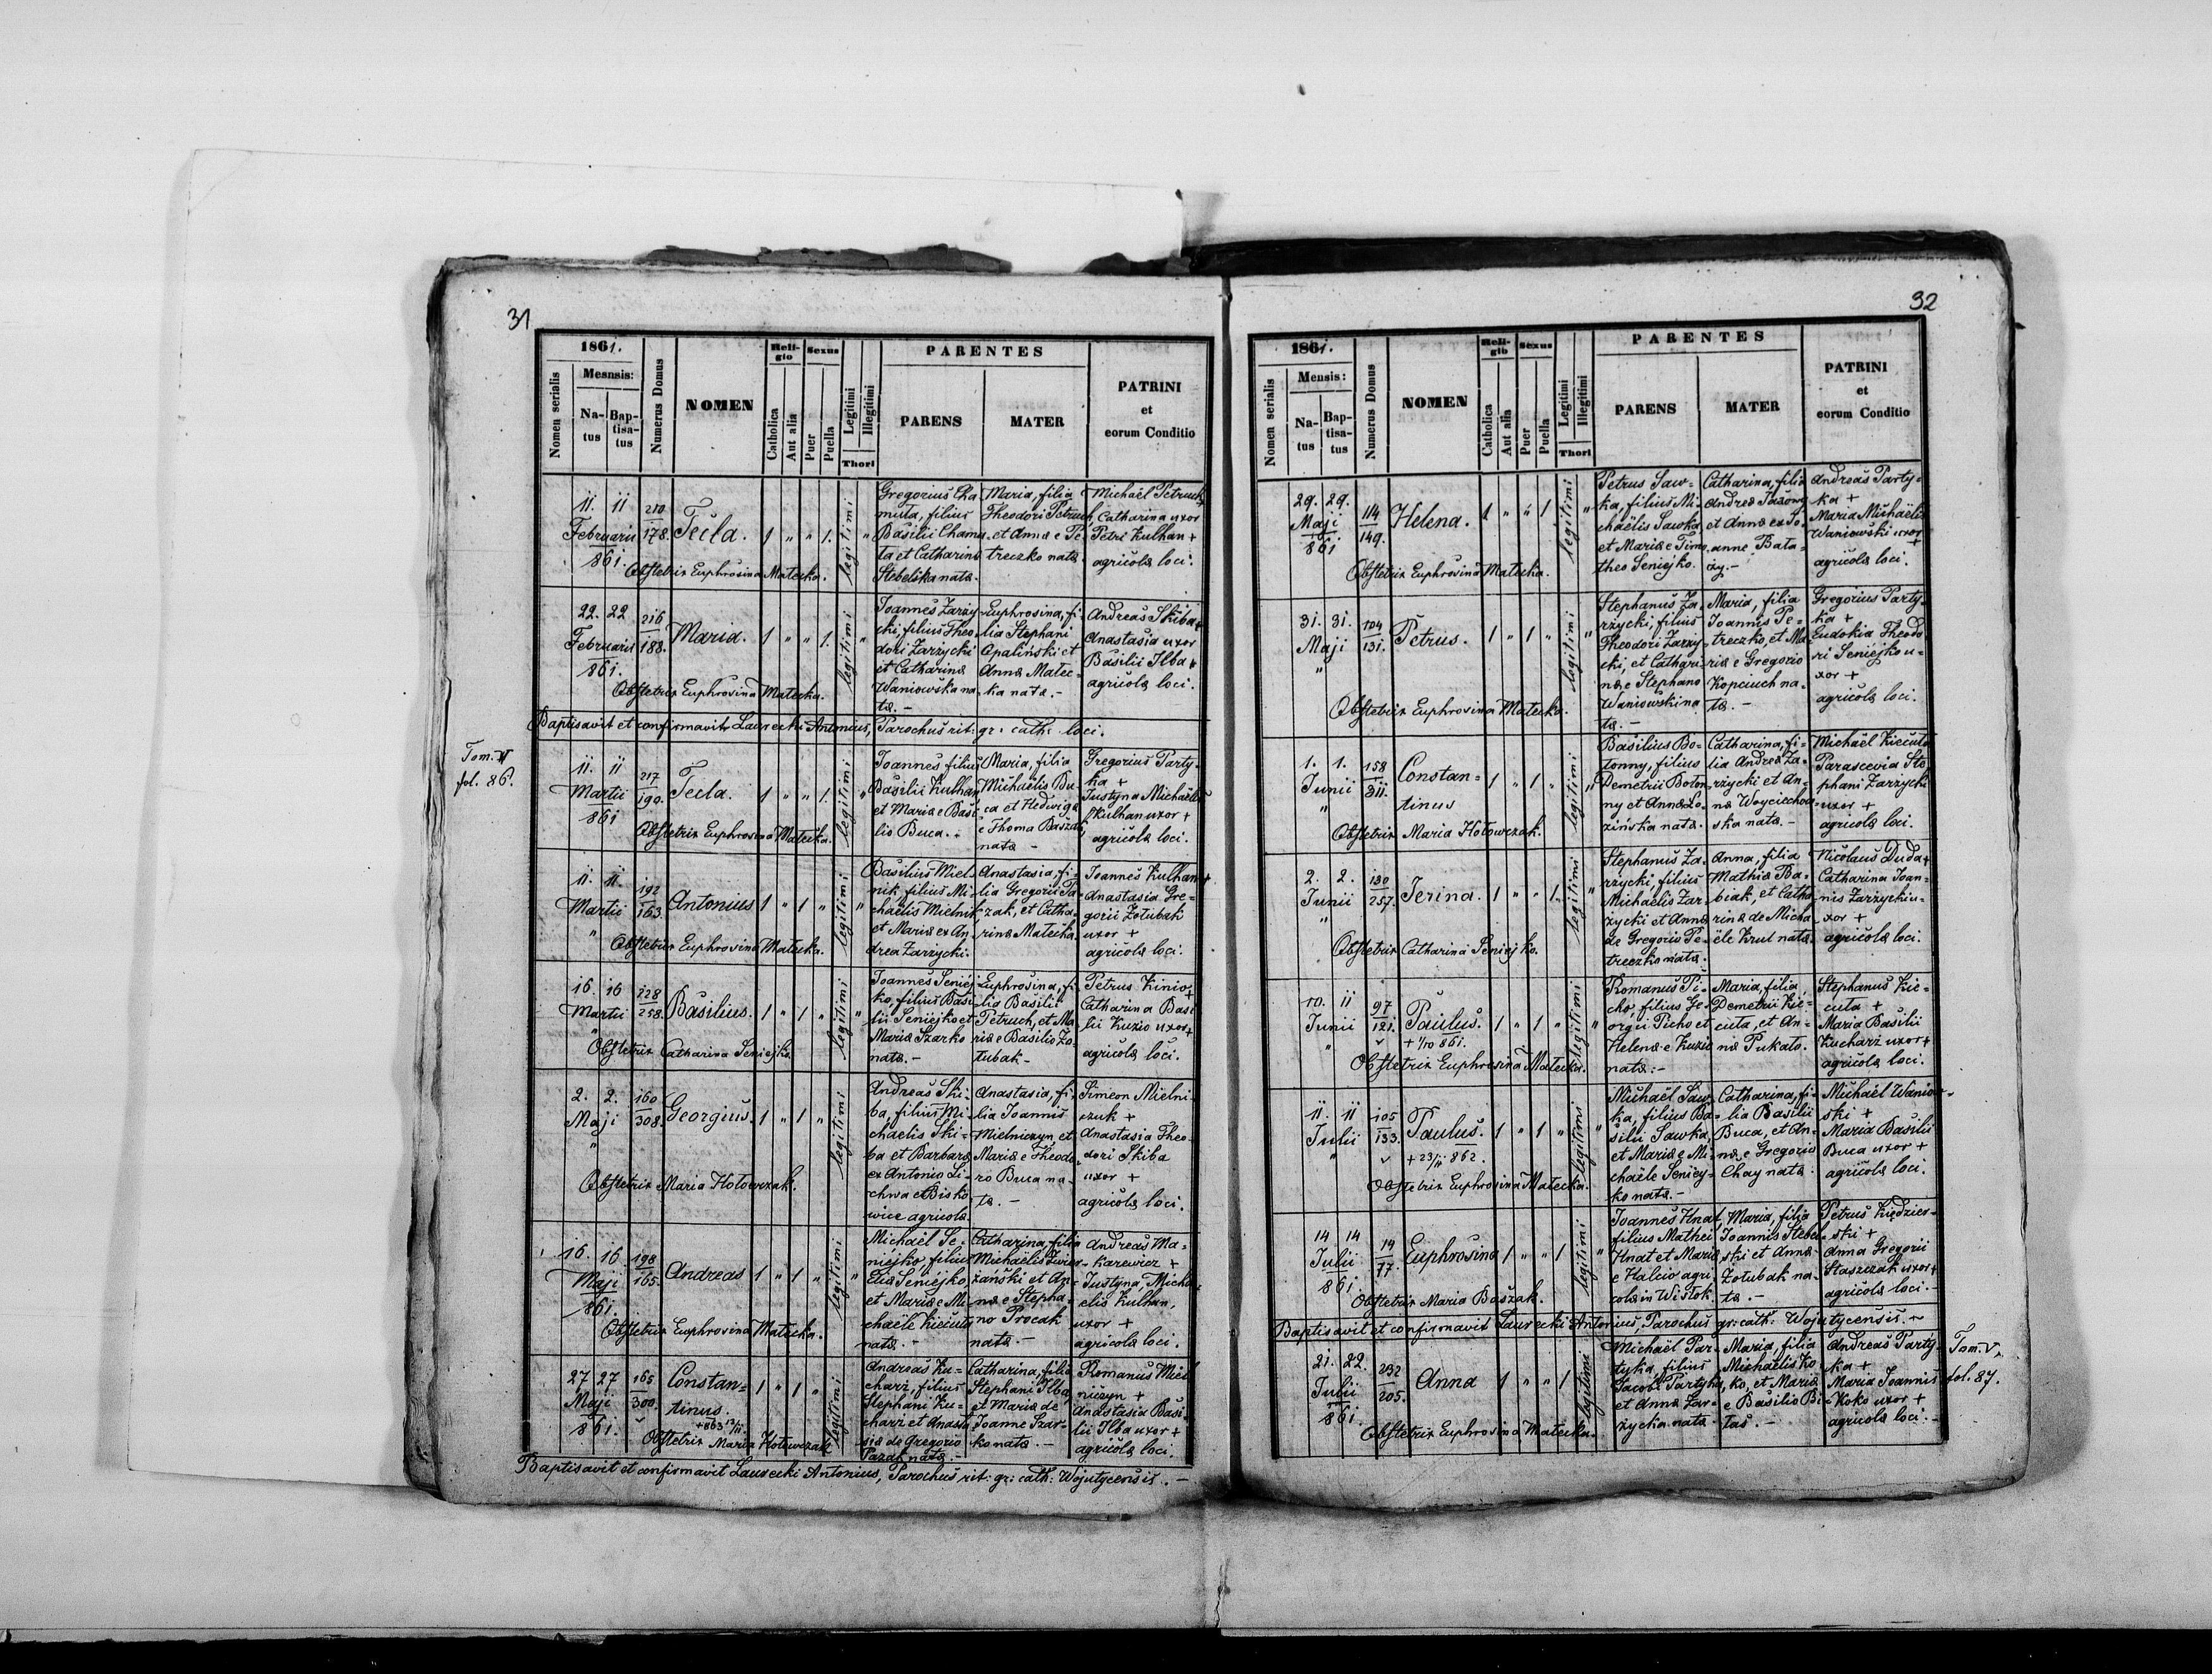 31
1861.
Mesnsis:
Nomen serialis
Na-
tus
Bap-
tisa-
tus
Numerus Domus
NOMEN
Reli-
gio
Catholica
Aut alia
Sexus
Puer
Puella
Legitimi
Illegitimi
Thori
PARENTES
PARENS
MATER
PATRINI
et
eorum Conditio
11. 11
Februarii
861.
210
178.
Tecla.
1 " " 1.
legitimi
"
Gregorius Cha
muta, filius
Basilii Chamu-
ta et Catharina
Stebelska nata.
Maria, filia
Theodori Petruch
et Anna e Pe-
treczko nata.
Michaël Petruch +
Catharina uxor
Petri Kulhan +
agricolæ loci.
Obstetrix Euphrosina Matecka.
22. 22
Februarii
861.
216
188.
Maria.
1 " " 1.
legitimi
"
Joannes Zarzy
cki, filius Theo
dori Zarzycki
et Catharina
Waniowska na
ta.-
Euphrosina, fi
lia Stephani
Opaliński et
Anna Matec-
ka nata.-
Andreas Skiba +
Anastasia uxor
Basilii Ilba +
agricolæ loci.
Obstetrix Euphrosina Matecka.
Baptisavit et confirmavit Laurecki Antonius, Parochus rit: gr: cath: loci.
Tom. V
fol. 86.
11. 11
Martii
861
217
190.
Tecla.
1 " " 1.
legitimi
"
Joannes filius
Basilii Kulhan
et Maria e Basi
lio Buca.-
Maria, filia
Michaëlis Bu-
ca et Hedwiga
e Thoma Baszak
nata -
Gregorius Party-
ka +
Justyna Michaëlis
Kulhan uxor +
agricolæ loci.
Obstetrix Euphrosina Matecka.
11. 11.
Martii
"
192
163.
Antonius
1 " 1 "
legitimi
"
Basilius Miel-
nik, filius Mi-
chaëlis Mielnik
et Maria ex An
drea Zarzycki.
Anastasia, fi-
lia Gregorii Pa
zak, et Catha-
rina Matecka.
Joannes Kulhan +
Anastasia Gre-
gorii Zotubak
uxor +
agricolæ loci.
Obstetrix Euphrosina Matecka.
16 16
Martii
"
228
258.
Basilius.
1 " 1 "
legitimi
"
Joannes Seniej
ko, filius Basi-
lii Seniejko et
Maria Szarko
nata.-
Euphrosina, fi
lia Basilii
Petruch, et Ma
ria e Basilio Zo
tubak-
Petrus Kinio +
Catharina Basi
lii Kuzio uxor +
agricolæ loci.
Obstetrix Catharina Seniejko.
2. 2.
Maji
"
160
308.
Georgius.
1 " 1 "
legitimi
Andreas Ski-
ba, filius Mi-
chaelis Ski-
ba et Barbara
ex Antonio Li-
chwa e Bisko
wice agricola.
Anastasia, fi-
lia Joannis
Mielniczyn, et
Maria e Theodo
ro Buca na-
ta.-
Simeon Mielni-
czuk +
Anastasia Theo-
dori Skiba
uxor +
agricolæ loci.
Obstetrix Maria Hołowczak.
16. 16
Maji
861.
198
165.
Andreas
1 " 1 "
legitimi
"
Michaël Se-
niejko, filius
Eliæ Seniejko,
et Maria e Mi
chaële Kiecuta
nata.-
Catharina, filia
Michaëlis Zwier-
żański et An-
na e Stepha-
no Procak
nata.-
Andreas Ma-
karewicz +
Justyna, Micha-
elis Kulhan,
uxor +
agricolæ loci.
Obstetrix Euphrosina Matecka.
27 27
Maji
861.
165
300.
Constan-
tinus.
1 " 1 "
legitimi
Andreas Ku-
charz, filius
Stephani Ku-
charz et Anasta
sia de Gregorio
Pazak nata.-
Catharina, filia
Stephani Ilba,
et Maria de
Joanne Szar-
ko nata.-
Romanus Miel
niczyn +
Anastasia Basi-
lii Ilba uxor +
agricolæ loci.
Obstetrix Maria Hołowczak.
Baptisavit et confirmavit Laurecki Antonius, Parochus rit: gr: cath: Wojutycensis.-
32
1861.
Mensis:
Nomen serialis
Na-
tus
Bap-
tisa-
tus
Numerus Domus
NOMEN
Reli-
gio
Catholica
Aut alia
Sexus
Puer
Puella
Legitimi
Illegitimi
Thori
PARENTES
PARENS
MATER
PATRINI
et
eorum Conditio
29. 29.
Maji
861
114
149.
Helena.
1 " " 1
legitimi
"
Petrus Saw-
ka, filius Mi-
chaëlis Sawka
et Maria e Timo
theo Seniejko.
Catharina, filia
Andreæ
et Anna ex Jo-
anne Bata-
zy.-
Andreas Party-
ka +
Maria Michaëlis
Waniowski uxor +
agricolæ loci.
Obstetrix Euphrosina Matecka.
31. 31.
Maji
"
104
131.
Petrus.
1 " 1 "
legitimi
"
Stephanus Za-
rzycki, filius
Theodori Zarzy
cki, et Cathari
na e Stephano
Waniowski na
ta.-
Maria, filia
Joannis Pe-
treczko, et Ma
ria e Gregorio
Kopciuch na-
ta.-
Gregorius Party-
ka +
Eudokia Theodo
ri Seniejko u-
xor +
agricolæ loci.
Obstetrix Euphrosina Matecka.
1. 1.
Junii
"
158
311.
Constan-
tinus
1 " 1 "
legitimi
"
Basilius Bo-
tonny, filius
Demetrii Boton
ny et Anna Lo-
zińska nata.
Catharina, fi-
lia Andreæ Za-
rzycki et An-
na Woyciechow
ska nata.-
Michaël Kiecuta
Parascevia Ste
phani Zarzycki
uxor +
agricolæ loci.
Obstetrix Maria Hołowczak.
2. 2.
Junii
"
130
257.
Jerina.
1 " " 1.
legitimi
"
Stephanus Za-
rzycki, filius
Michaëlis Zar-
zycki et Anna
de Gregorio Pe-
treczko nata.
Anna, filia
Mathiæ Ba-
biak, et Catha
rina de Micha-
ële Krul nata.
Nicolaus Duda +
Catharina Joan-
nis Zarzycki u-
xor +
agricolæ loci.
Obstetrix Catharina Seniejko.
10. 11
Junii
"
97
121.
Paulus.
+ 1/10 861.
1 " 1 "
legitimi
"
Romanus Pi-
cho, filius Ge-
orgii Picho et
Helena e Kuzio
nata.-
Maria, filia
Demetrii Kie-
cuta, et An-
na Pukato.
Stephanus Kie-
cuta +
Maria Basilii
Kucharz uxor +
agricolæ loci.
Obstetrix Euphrosina Matecka.
11. 11
Julii
"
105
133.
Paulus.
1 " 1 "
legitimi
"
Michaël Saw-
ka, filius Ba-
silii Sawka,
et Maria e Mi-
chaële Seniey-
ko nata.-
Catharina, fi-
lia Basilii
Buca, et An-
na e Gregorio
Chay nata.
Michaël Waniow-
ski +
Maria Basilii
Buca uxor +
agricolæ loci.
Obstetrix Euphrosina Matecka.
14 14
Julii
861.
14
77.
Euphrosina
1 " " 1
legitimi
"
Joannes Hnat,
filius Mathei
Hnat et Maria
e Halcio agri
cola in Wistok.
Maria, filia
Joannis Stebel-
ski et Anna
Zotubak na-
ta.-
Petrus Kiędzier-
ski +
Anna Gregorii
Staszczak uxor +
agricolæ loci.-
Obstetrix Maria Baszak.
Baptisavit et confirmavit Laurecki Antonius, Parochus gr: cath: Wojutycensis.-
21. 22.
Julii
861.
232
205.
Anna
1 " " 1
legitimi
Michaël Par-
tyka, filius
Jacobi Partyka,
et Anna Zar-
zycka nata
Maria, filia
Michaëlis Ko-
ko, et Maria
e Basilio Bi-
tas.-
Andreas Party-
ka +
Maria Joannis
Koko uxor +
agricolæ loci.-
Obstetrix Euphrosina Matecka.
Tom. V.
fol. 87.